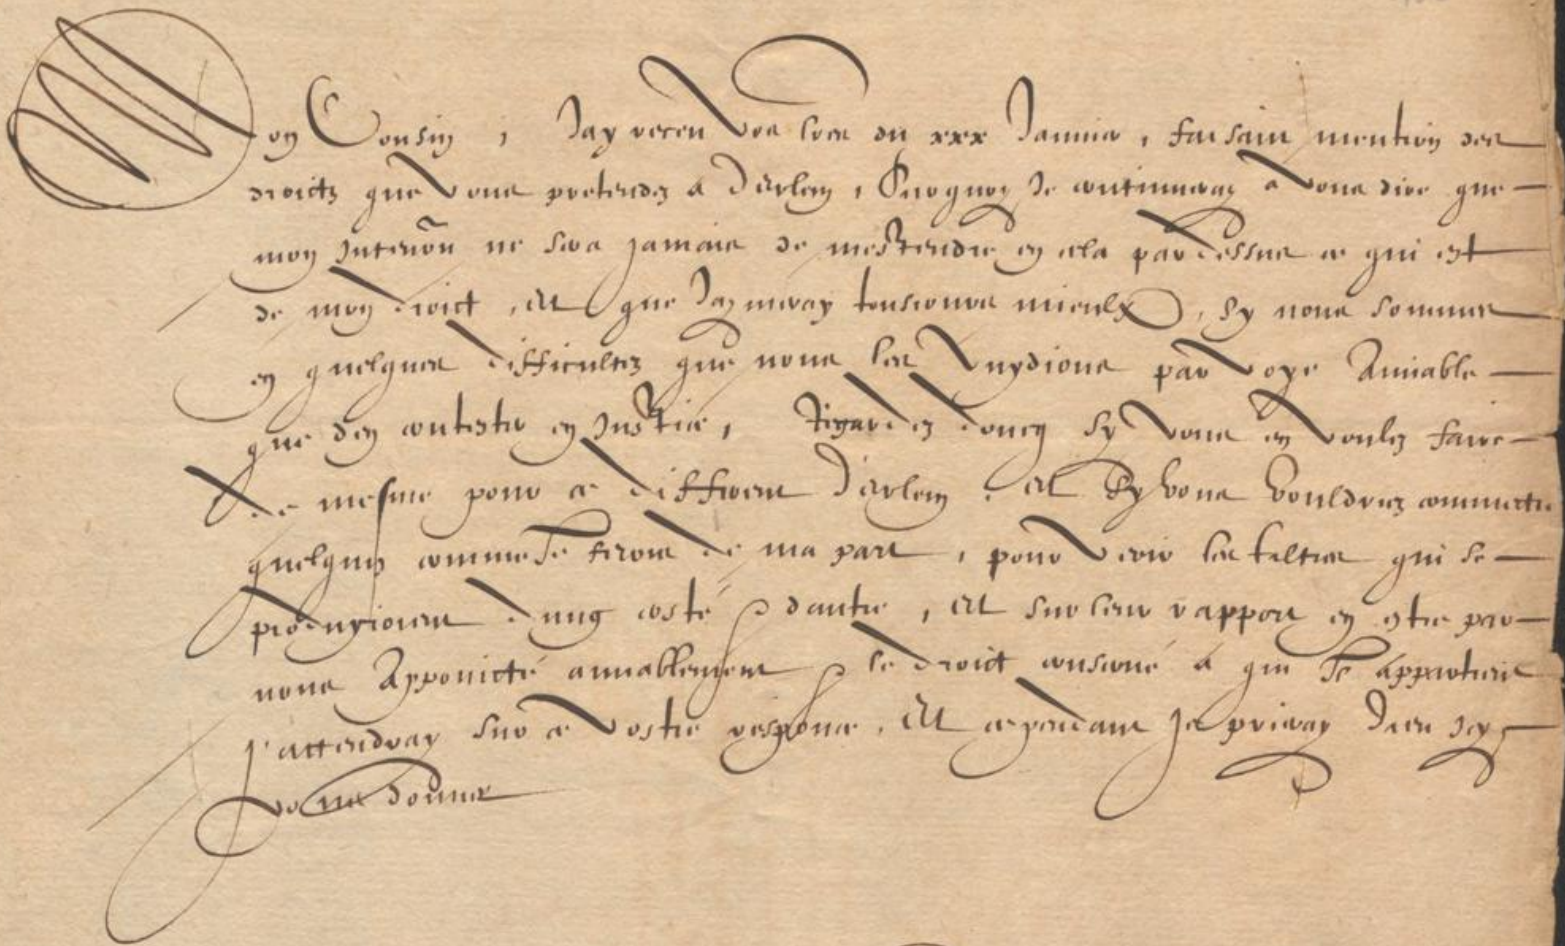 Mon Cousin, Jay receu vre lre du xxx Januier, faisant mention des
droictz que vous pretendez a Darlem, Surquoy Je continueray a vous dire que
mon Intention ne sera jamais de mestendre en cela pardessus ce qui est
de mon droict, Et que Jaymeray tousiours mieulx, sy nous sommes
en quelques difficultez que nous les vuydions par voye Amiable
que den contester en Justice, Regardez doncq sy vous en voulez faire
de mesme pour ce different Darlem, et sy vous vouldriez commectre
quelquns comme Je ferois de ma part, pour veoir les tiltres qui se
produyroient dung costé & dautre, Et sur leur rapport en estre par
nous Appoincté amiablement & le droict conserué a qui Il appartient
J'attendray sur ce vostre response, Et cependant Je prieray Dieu
vous donner